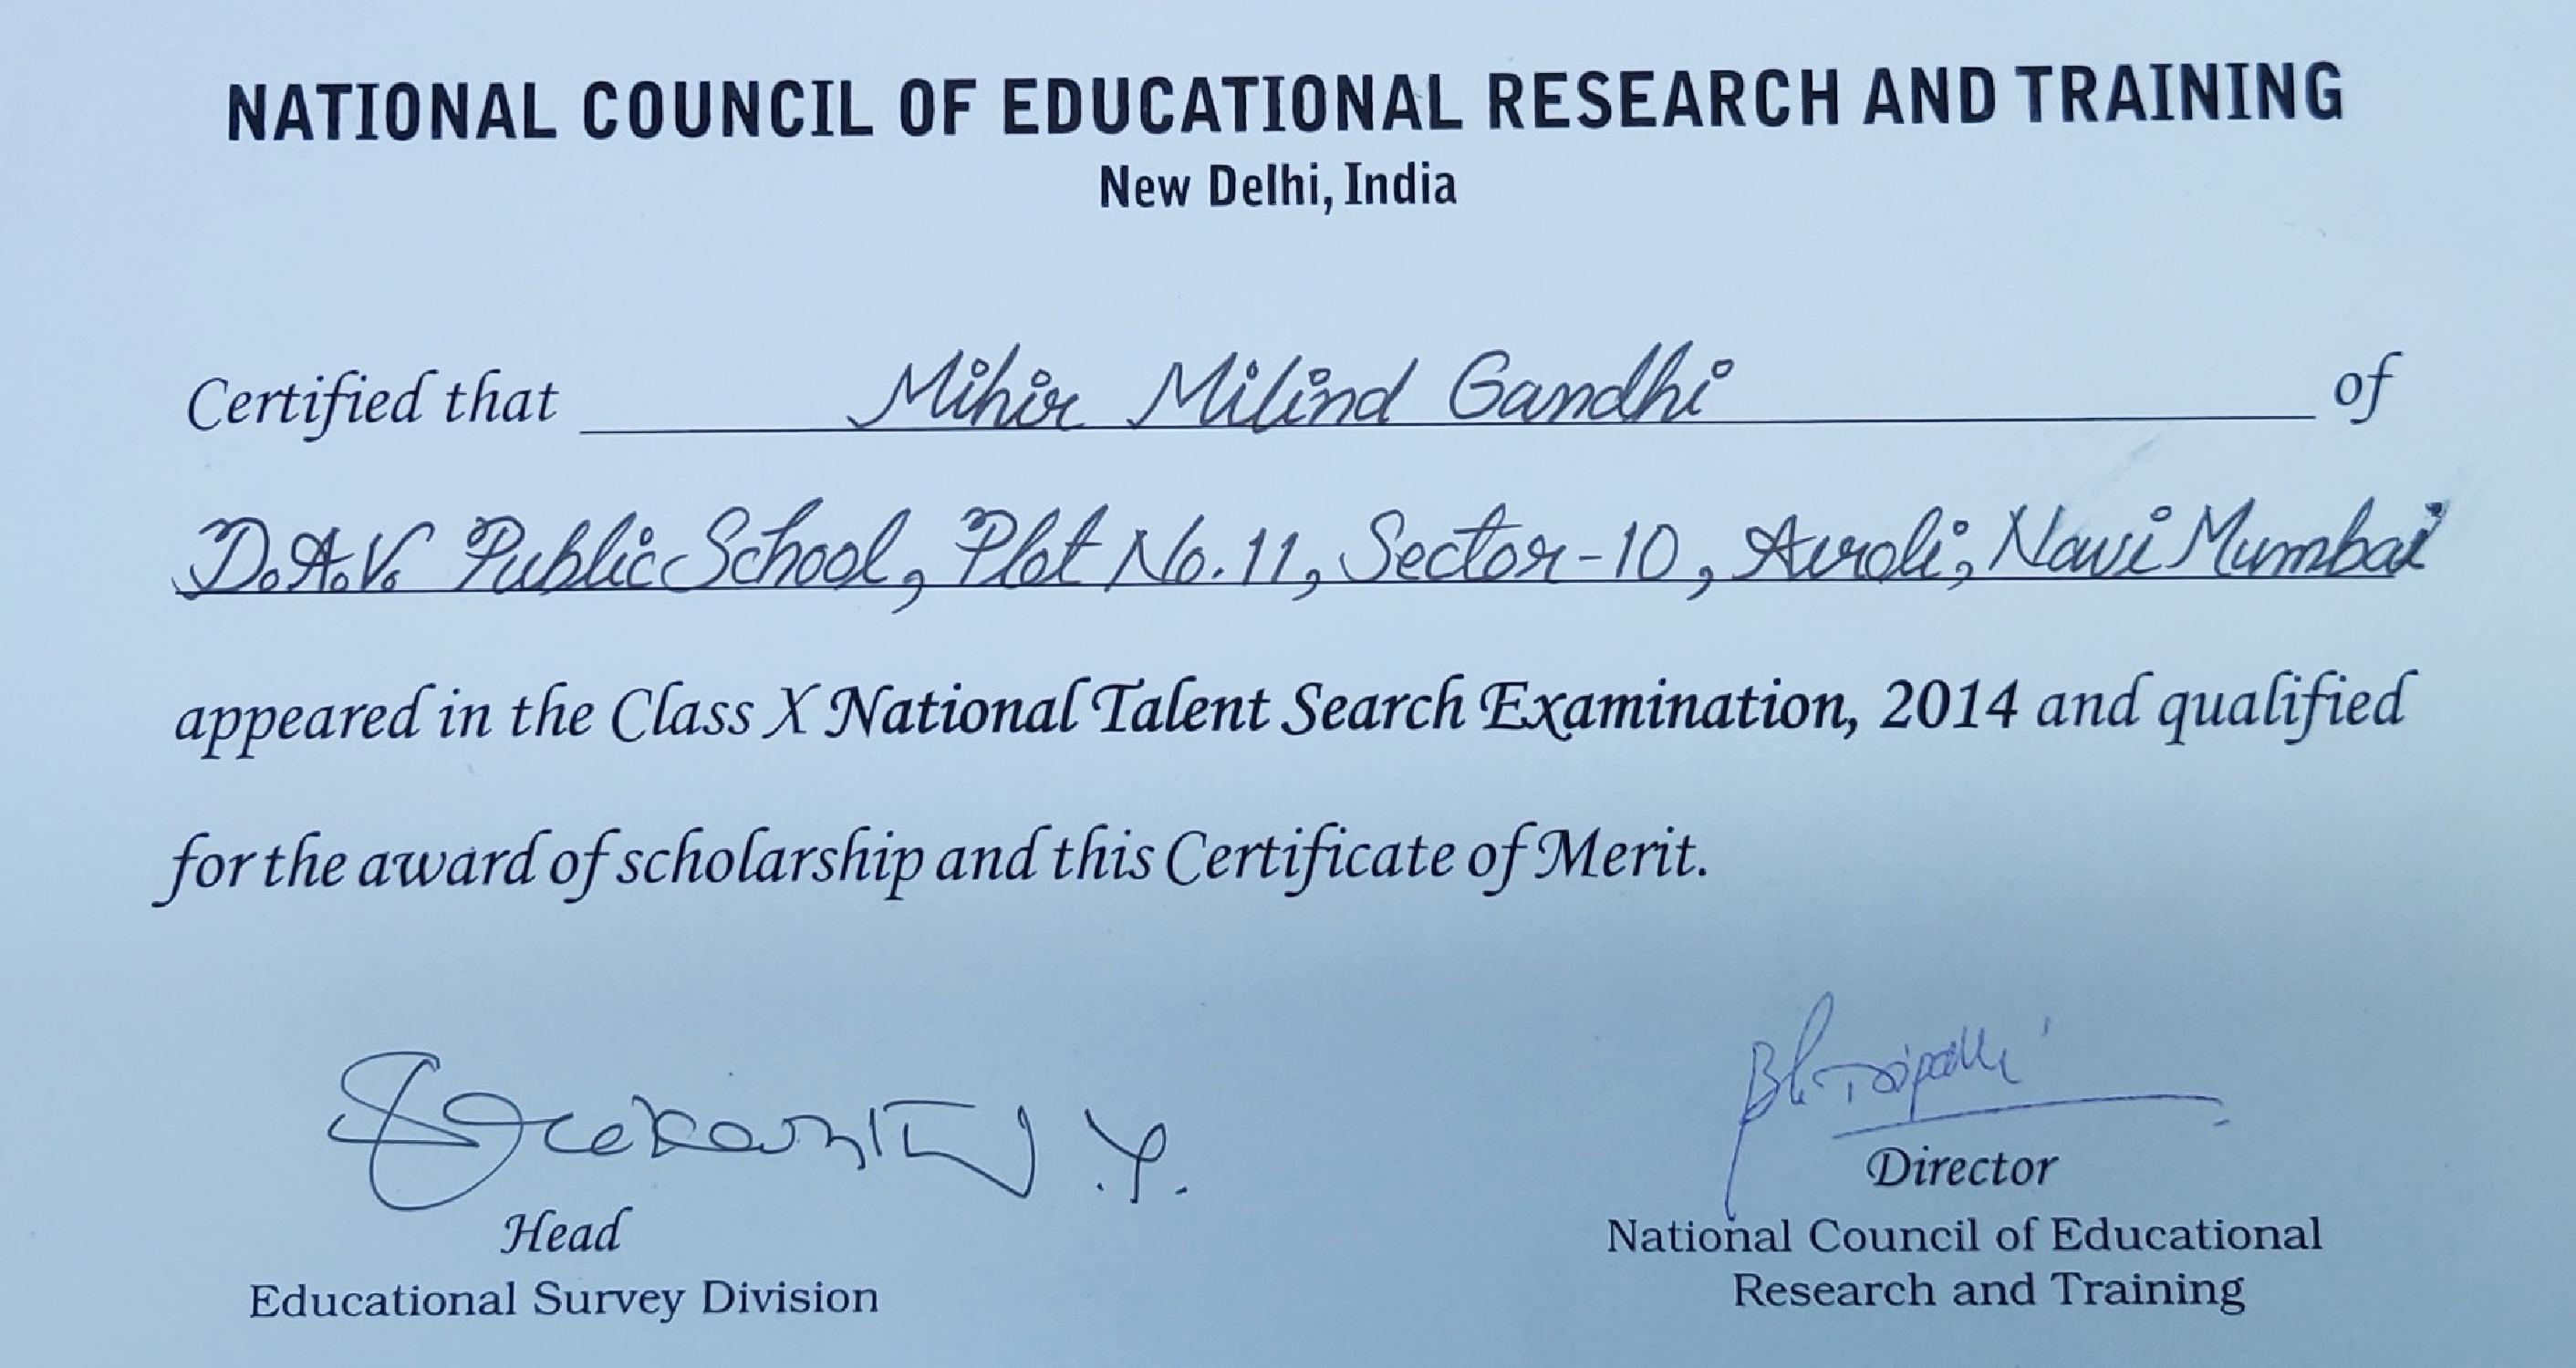 NATIONAL COUNCIL OF EDUCATIONAL RESEARCH AND TRAINING
New Delhi, India
Certified that Mihir Milind Gandhi of
D.A.V. Public School, Plot No.11, Sector-10, Airoli, Navi Mumbai
appeared in the Class X National Talent Search Examination, 2014 and qualified
for the award of scholarship and this Certificate of Merit.
Head
Educational Survey Division
Director
National Council of Educational
Research and Training